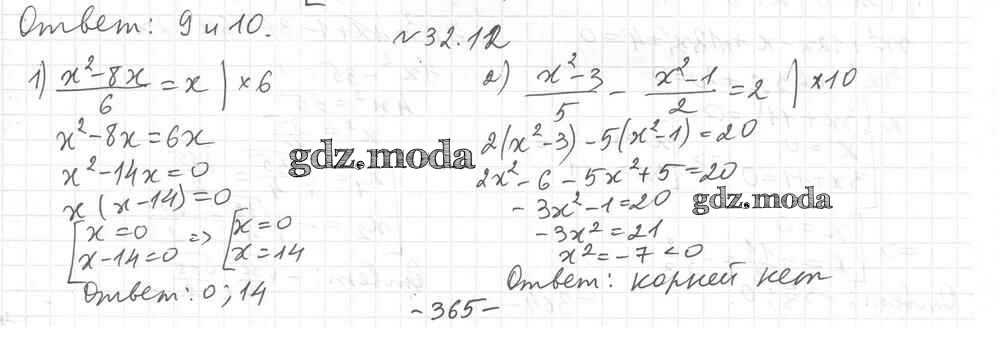 Ответ: 9 и 10.
№32.12
1) (x²-8x)/6 = x | ×6
x²-8x=6x
x²-14x=0
x(x-14)=0
[x=0 => [x=0
[x-14=0 [x=14
Ответ: 0; 14
2) (x²-3)/5 - (x²-1)/2 = 2 | ×10
2(x²-3)-5(x²-1)=20
2x²-6-5x²+5=20
-3x²-1=20
-3x²=21
x²=-7<0
Ответ: корней нет
gdz.moda
gdz.moda
-365-